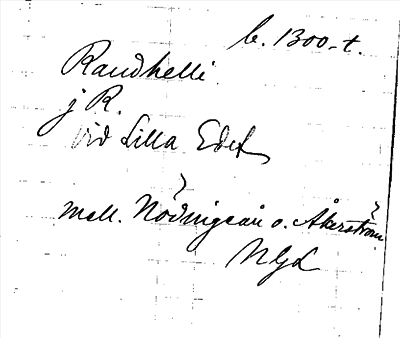 b. 1300-t.
Raudhelli
j R.
vid Lilla Edet
mell. Nödingeån o. Åkerström.
NGL